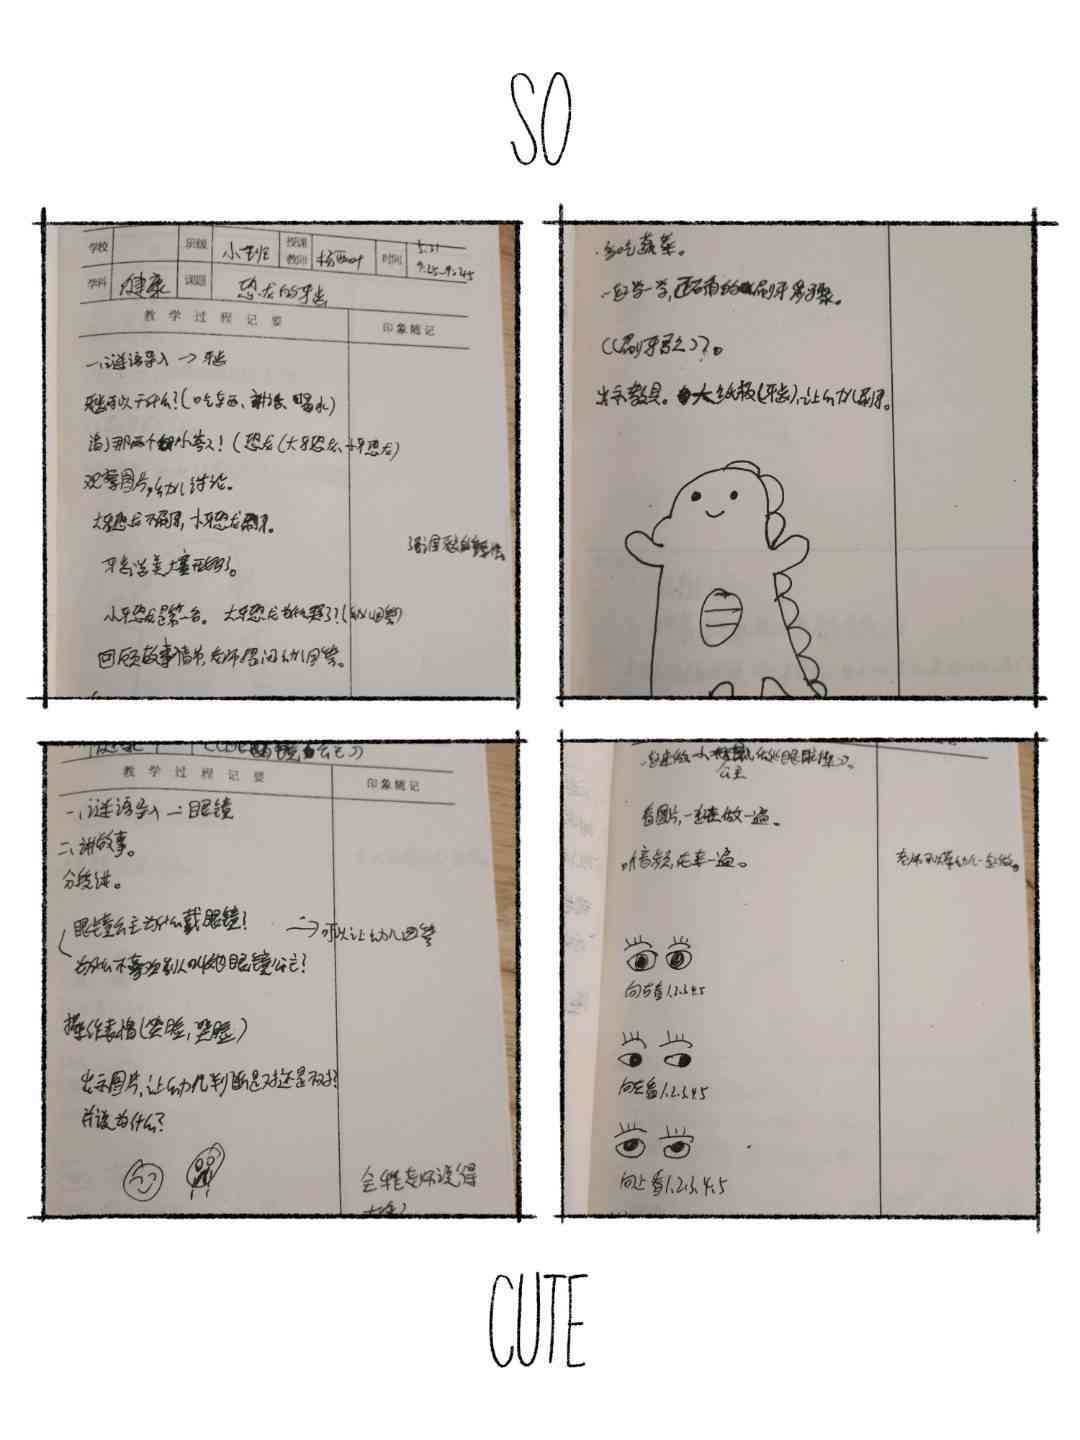 SO
学校 班级 小班 授课教师 时间 5.21
9:25-9:45
学科 健康 课题 恐龙的牙齿
教学过程记要 印象随记
一、谜语导入→牙齿
牙齿可以干什么?(吃东西、讲话、喝水)
请到那两个小客人!(恐龙(大牙恐龙、小牙恐龙)
观察图片,幼儿讨论。
大牙恐龙不刷牙,小牙恐龙刷牙。
牙齿选美大赛开始了。
小牙恐龙是第一名。大牙恐龙为什么哭了?(幼儿回答)
回顾故事情节,老师提问幼儿回答。
多吃蔬菜。
一起学一学,正确的刷牙步骤。
《刷牙歌》?。
出示教具。大纸板(牙齿),让幼儿刷牙。
教学过程记要 印象随记
一、谜语导入→眼镜
二、讲故事。
分段讲。
眼镜公主为什么戴眼镜?
→可以让幼儿回答
为什么不喜欢别人叫她眼镜公主?
操作表情(笑脸,哭脸)
出示图片,让幼儿判断是对还是不对?
并说为什么?
公主
看图片,一起来做一遍。
听音频,在来一遍。
向右看1.2.3.4.5
向左看1.2.3.4.5
向上看1.2.3.4.5
CUTE